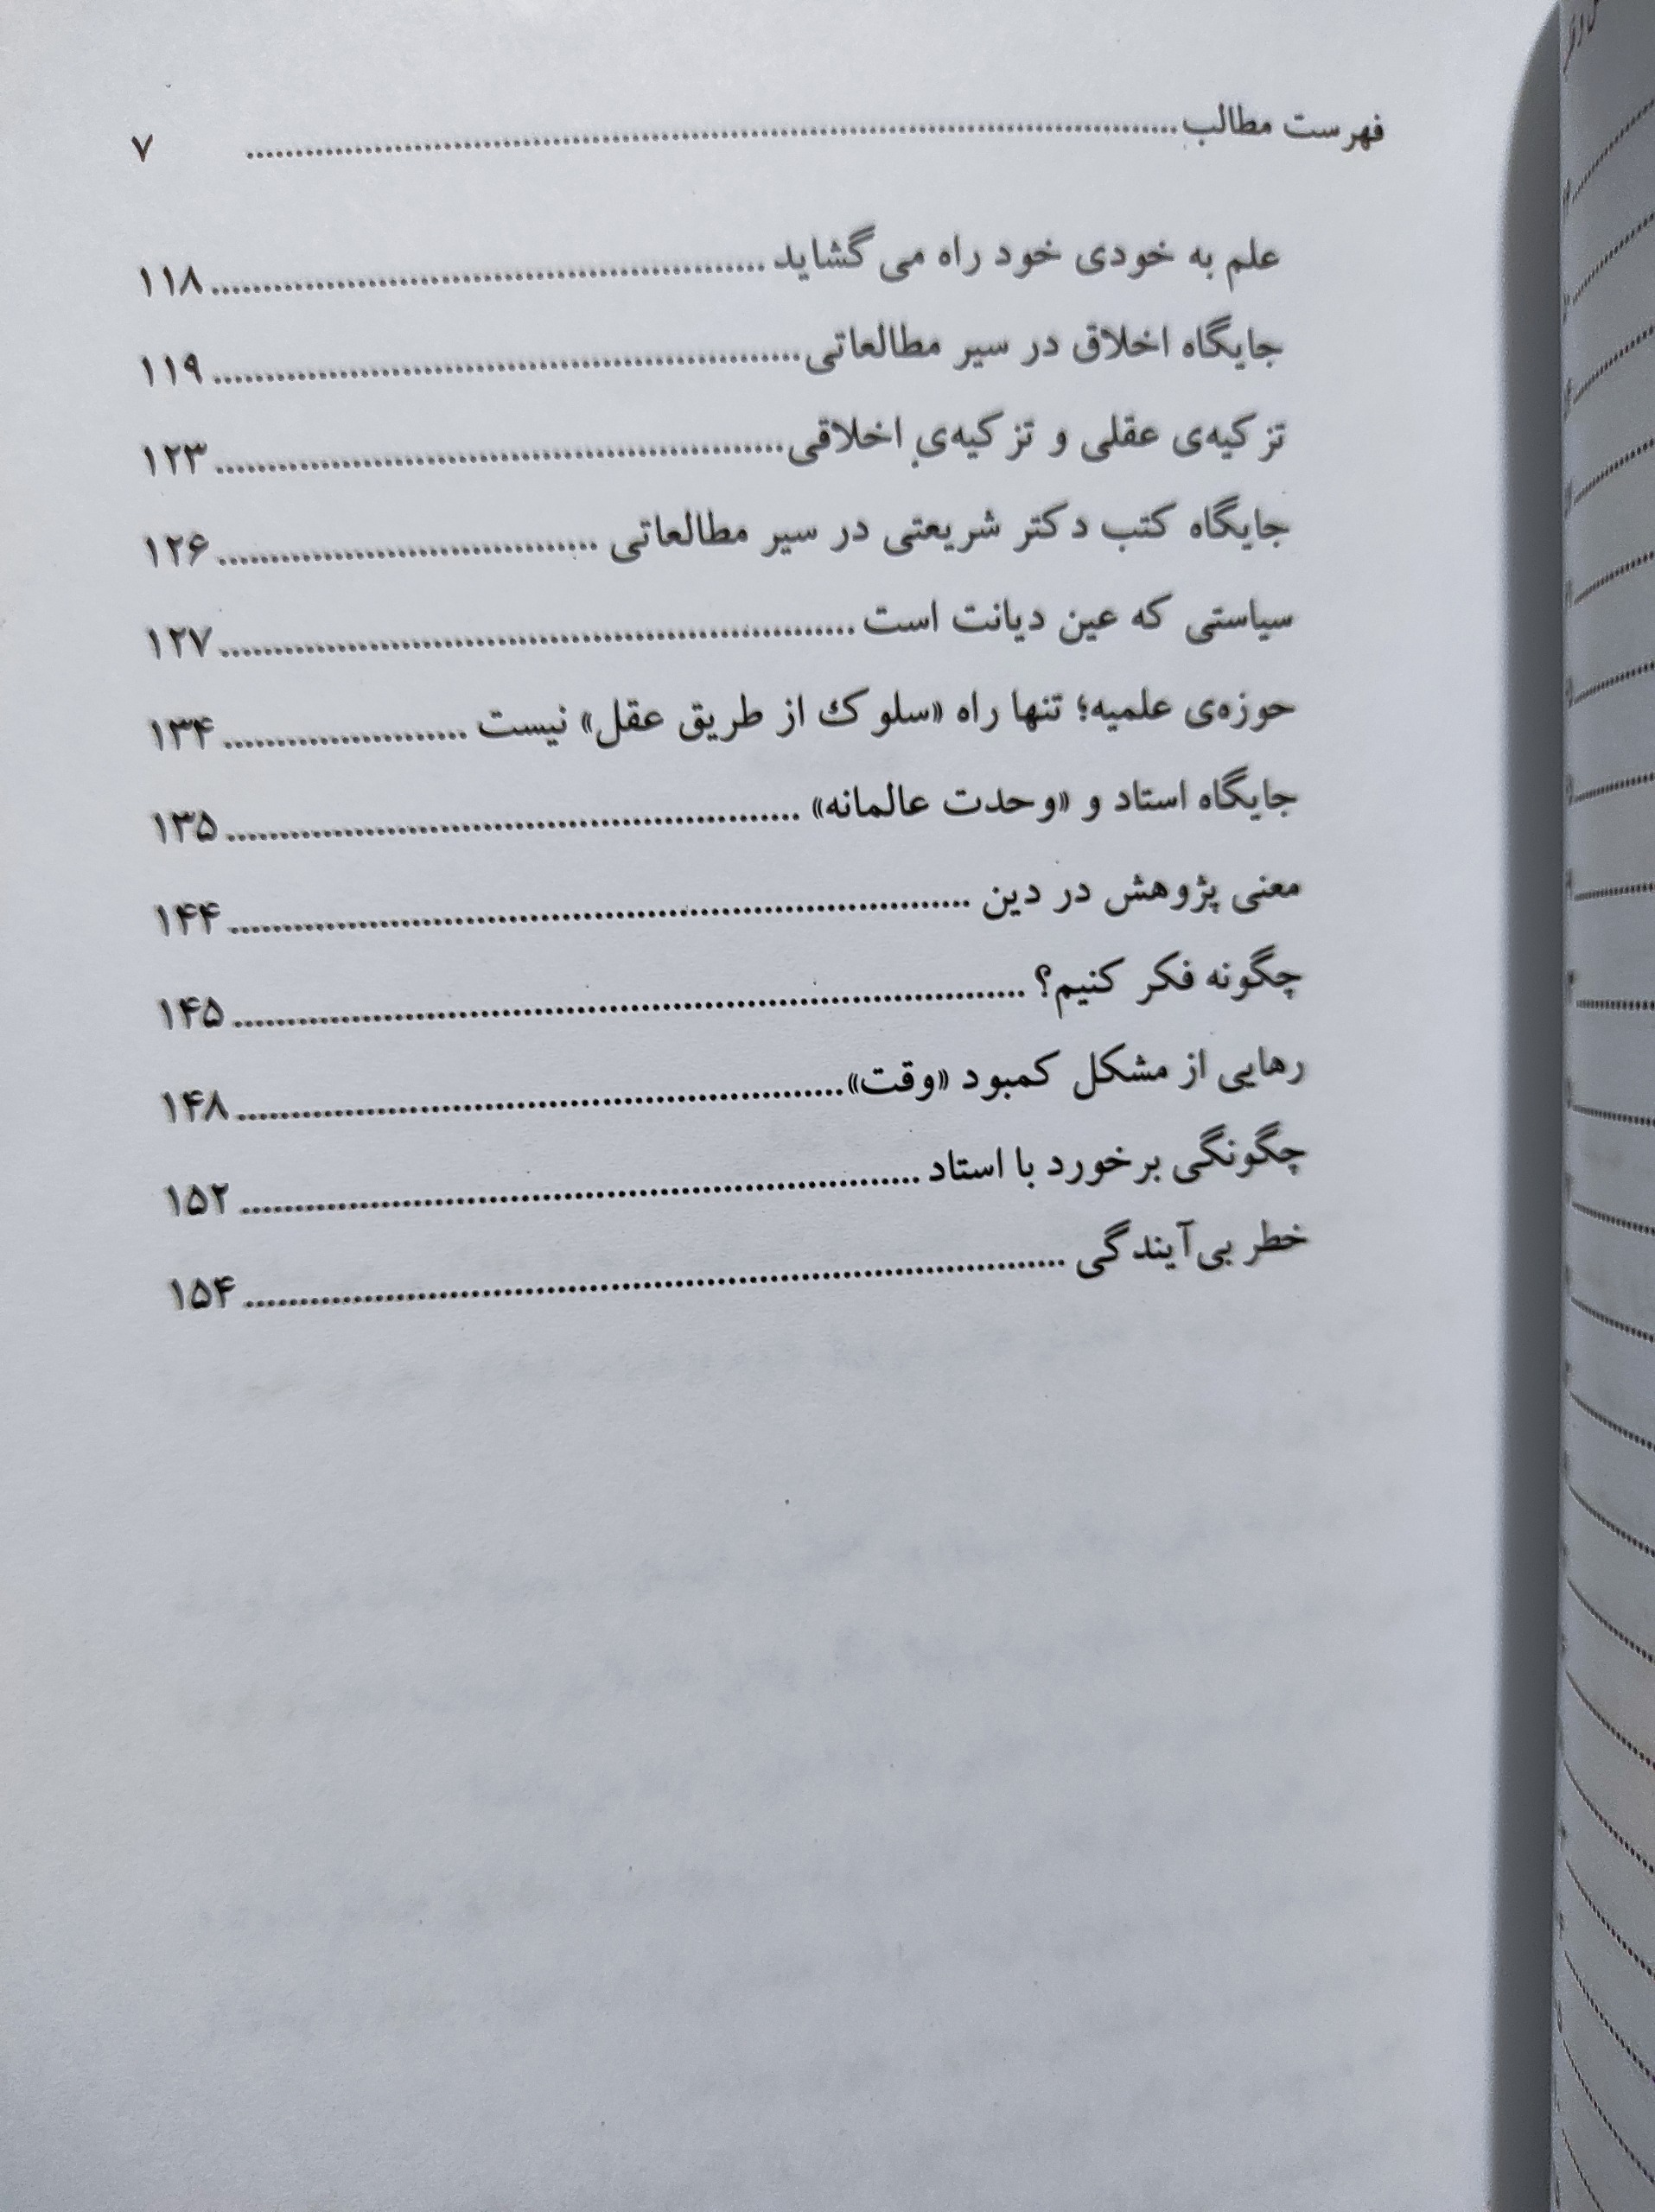 فهرست مطالب........................................................................................ ۷
علم به خودی خود راه می‌گشاید ........................................................ ۱۱۸
جایگاه اخلاق در سیر مطالعاتی........................................................ ۱۱۹
تزکیه‌ی عقلی و تزکیه‌ی اخلاقی........................................................ ۱۲۳
جایگاه کتب دکتر شریعتی در سیر مطالعاتی ........................................ ۱۲۶
سیاستی که عین دیانت است ............................................................ ۱۲۷
حوزه‌ی علمیه؛ تنها راه «سلوک از طریق عقل» نیست ........................ ۱۳۴
جایگاه استاد و «وحدت عالمانه» ...................................................... ۱۳۵
معنی پژوهش در دین ...................................................................... ۱۴۴
چگونه فکر کنیم؟ .......................................................................... ۱۴۵
رهایی از مشکل کمبود «وقت»........................................................ ۱۴۸
چگونگی برخورد با استاد ................................................................ ۱۵۲
خطر بی‌آیندگی .............................................................................. ۱۵۴